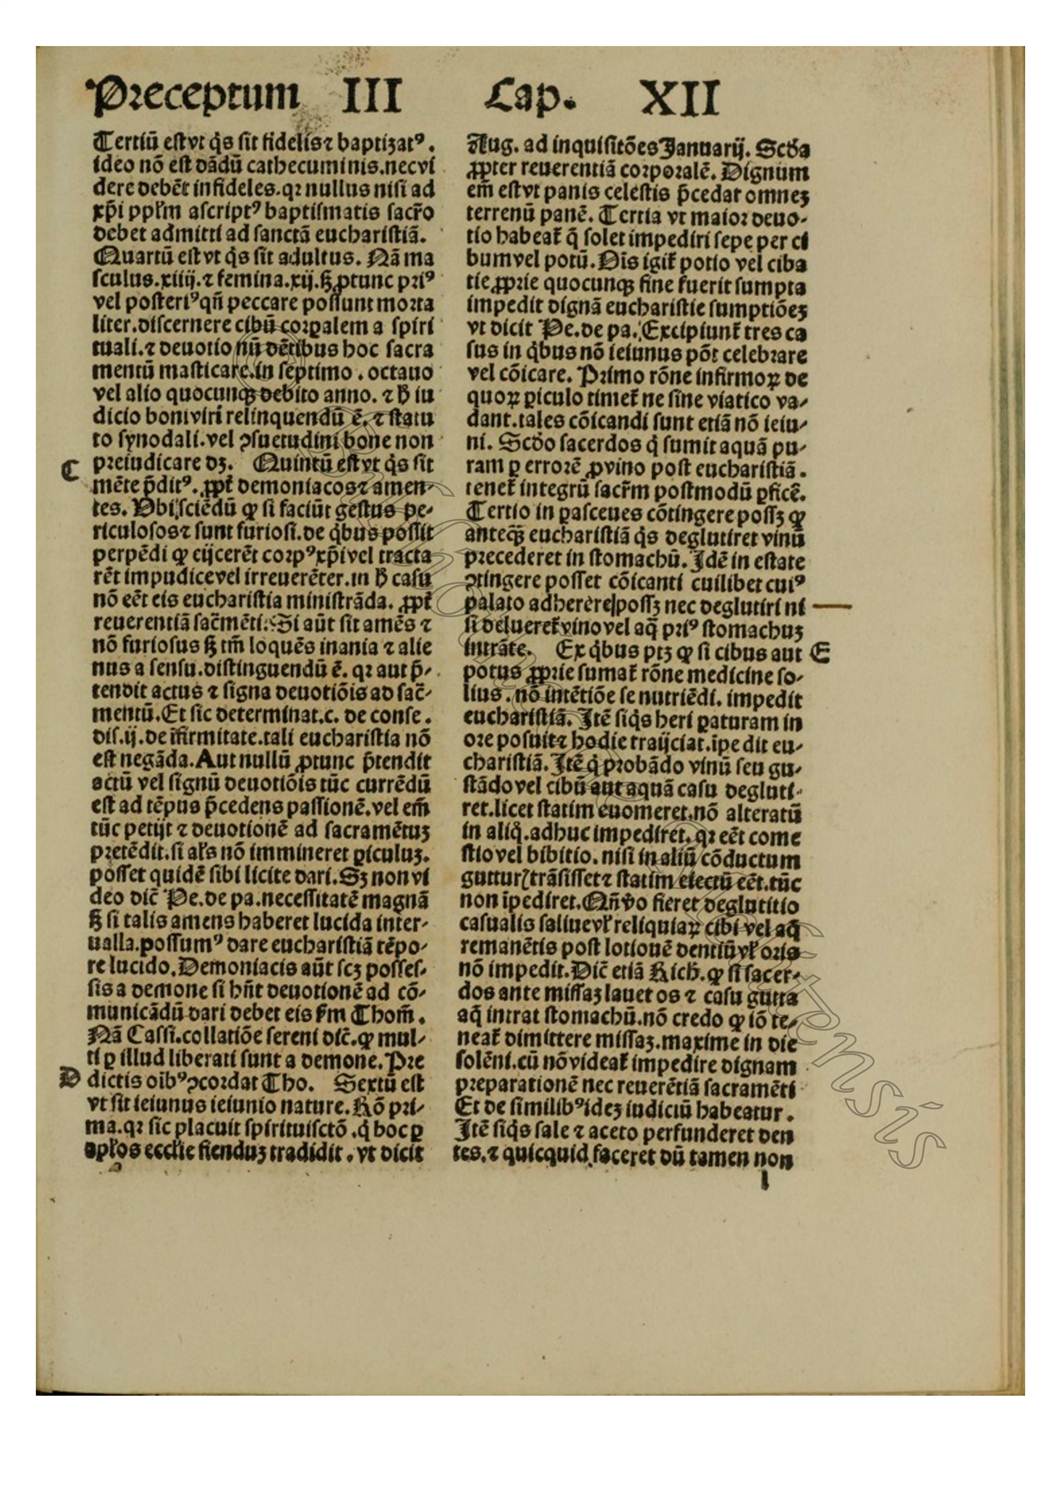 Preceptum III Cap. XII
Tertiū est vt q̇s sit fidelis ⁊ baptizatꝰ.
ideo nō est dādū cathecuminis. nec vi
dere debēt infideles. qꝛ nullus nisi ad
xp̄i ppłm ascriptꝰ baptismatis sacr̄o
debet admitti ad sanctā eucharistiā.
Quartū est vt q̇s sit adultus. Nā ma
sculus .xiiij. ⁊ femina .xij. ꝫ ꝓtunc priꝰ
vel posteriꝰ qn̄ peccare possunt morta
liter. discernere cibū corꝑalem a spiri
tuali. ⁊ deuotio nū dētibus hoc sacra
mentū masticare. in septimo . octauo
vel alio quocunqꝫ debito anno. ⁊ ħ iu
dicio boni viri relinquendū ē. ⁊ statu
to synodali. vel ꝯsuetudini bone non
C preiudicare dꝫ. Quintū est vt q̇s sit
mēte p̄ditꝰ. ꝓpt̄ demoniacos ⁊ amen-
tes. Vbi sciēdū ꝙ si faciūt gestus pe-
riculosos ⁊ sunt furiosi. de q̇bus possit
perpēdi ꝙ eijcerēt corpꝰ xp̄i vel tracta
rēt impudice vel irreuerēter. in ħ casu
nō eēt eis eucharistia ministrāda. ꝓpt̄
reuerentiā sac̄mēti. Si aūt sit amēs ⁊
nō furiosus ꝫ tm̄ loquēs inania ⁊ alie
nus a sensu. distinguendū ē. qꝛ aut p̄-
tendit actus ⁊ signa deuotiōis ad sac̄-
mentū. Et sic determinat .c. de conse.
dis. ij. de īfirmitate. tali eucharistia nō
est negāda. Aut nullū ꝓtunc p̄tendit
actū vel signū deuotiōis tūc currēdū
est ad tēpus p̄cedens passionē. vel em̄
tūc petijt ⁊ deuotionē ad sacramētuꝫ
pretēdit. si ałs nō immineret ꝑiculuꝫ.
posset quidē sibi licite dari. Sꝫ non vi
deo dic̄ Pe. de pa. necessitatē magnā
ꝫ si talis amens haberet lucida inter-
ualla. possumꝰ dare eucharistiā tēpo-
re lucido. Demoniacis aūt scꝫ posses-
sis a demone si hn̄t deuotionē ad cō-
municādū dari debet eis ẜm Thom̄.
Nā Cassi. collatiōe sereni dic̄. ꝙ mul-
ti ꝑ illud liberati sunt a demone. Pre
D dictis oibꝰ ꝯcordat Tho. Sextū est
vt sit ieiunus ieiunio nature. Rō pri-
ma. qꝛ sic placuit spiritui sctō . q̇ hoc ꝑ
apłos ecclie fienduꝫ tradidit . vt dicit
Aug. ad inquisitōes Januarij. Scd̄a
ꝓpter reuerentiā corporalē. Dignum
em̄ est vt panis celestis p̄cedat omneꝫ
terrenū panē. Tertia vt maior deuo-
tio habeat̄ q̄ solet impediri sepe per ci
bum vel potū. Ois igit̄ potio vel ciba
tie ꝓprie quocunqꝫ fine fuerit sumpta
impedit dignā eucharistie sumptiōeꝫ
vt dicit Pe. de pa. Excipiunt̄ tres ca
sus in q̇bus nō ieiunus pōt celebrare
vel cōicare. Primo rōne infirmoꝝ de
quoꝝ ꝑiculo timet̄ ne sine viatico va-
dant. tales cōicandi sunt etiā nō ieiu-
ni. Scd̄o sacerdos q̇ sumit aquā pu-
ram ꝑ errorē ꝓ vino post eucharistiā.
tenet̄ integrū sacr̄m postmodū ꝑficē.
Tertio in ꝑasceues cōtingere possꝫ ꝙ
anteqꝫ eucharistiā q̇s deglutiret vinū
precederet in stomachū. Idē in estate
ꝯtingere posset cōicanti cuilibet cuiꝰ
palato adherere possꝫ nec deglutiri ni
si delueret̄ vino vel aq̄ priꝰ stomachuꝫ
intrāte. Ex q̇bus ptꝫ ꝙ si cibus aut E
potus ꝓprie sumat̄ rōne medicine so-
lius . nō intētiōe se nutriēdi. impedit
eucharistiā. Itē siq̇s heri ꝑaturam in
ore posuit ⁊ hodie traijciat. īpedit eu-
charistiā. Itē q̇ probādo vinū seu gu-
stādo vel cibū aut aquā casu degluti-
ret. licet statim euomeret. nō alteratū
in aliq̄. adhuc impediret. qꝛ eēt come
stio vel bibitio. nisi in aliū cōductum
guttur trāsisset ⁊ statim eiectū eēt. tūc
non īpediret. Qn̄ v̄o fieret deglutitio
casualis saliue vł reliquiaꝝ cibi vel aq̄
remanētis post lotionē dentiū vł oris
nō impedit. Dic̄ etiā Rich. ꝙ si sacer-
dos ante missaꝫ lauet os ⁊ casu gutta
aq̄ intrat stomachū. nō credo ꝙ iō te-
neat̄ dimittere missaꝫ. maxime in die
solēni. cū nō videat̄ impedire dignam
preparationē nec reuerētiā sacramēti
Et de similibꝰ ideꝫ iudiciū habeatur.
Itē siq̇s sale ⁊ aceto perfunderet den
tes. ⁊ quicquid faceret dū tamen non
l